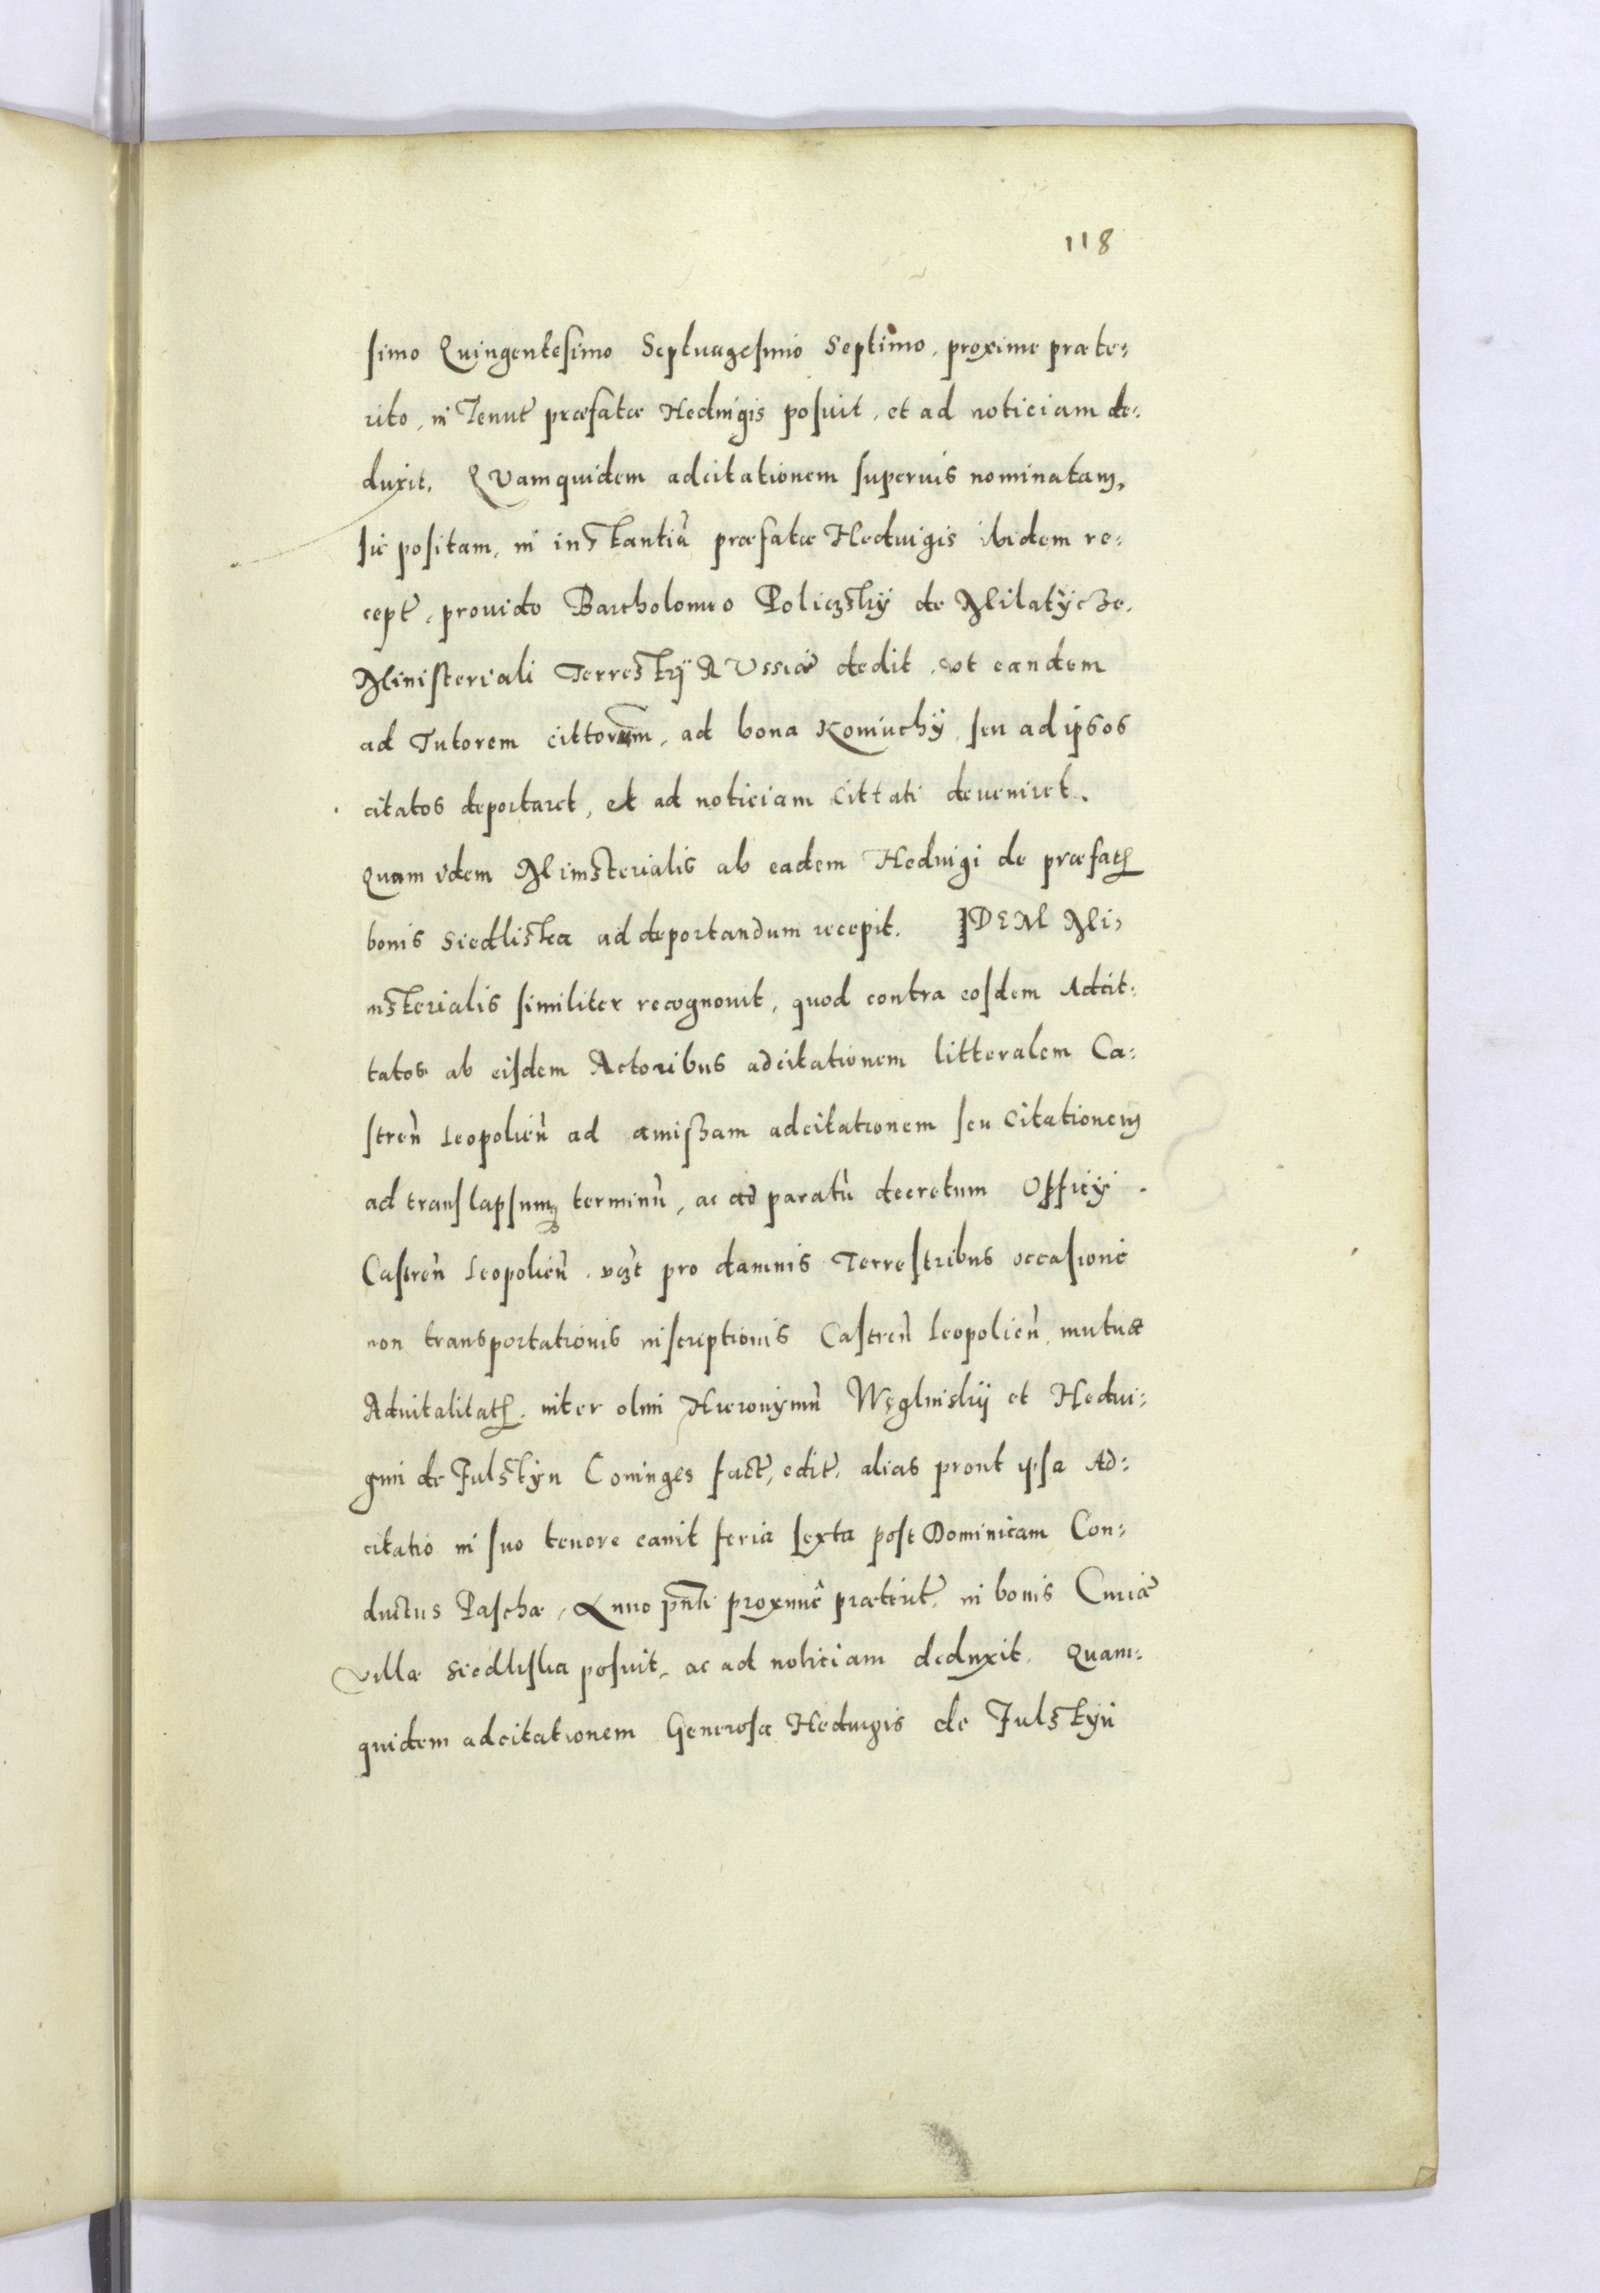 118
simo Quingentesimo Septuagesimo Septimo, proxime præte:
rito, in Tenut̃ præfatæ Heduigis posuit, et ad noticiam de:
duxit. QVamquidem adcitationem superuis nominatam,
sic positam, in instantiũ præfatæ Hedvigis ibidem re:
cept̃, prouido Bartholomeo Policzsky de Milatÿcze.
Ministeriali Terrestrÿ RVssiæ dedit, vt eandem
ad Tutorem cittorum, ad bona Koniuchÿ seu ad ipsos
citatos deportaret, et ad noticiam Cittati deueniret.
Quam idem Ministerialis ab eadem Heduigi de præfatꝭ
bonis Siedliska ad deportandum recepit. IDEM Mi:
nisterialis similiter recognouit, quod contra eosdem Adcit:
tatos ab eisdem Actoribus adcitationem litteralem Ca:
streñ Leopolieñ ad amissam adcitationem seu Citationem
ad translapsum terminũ, ac ad paratũ decretum Officÿ
Castreñ Leopolieñ. pro damnis Terrestribus occasione
non transportationis inscriptionis Castreñ Leopolieñ mutuæ
Aduitalitatꝭ. inter olim Hieronÿmũ Węglinskÿ et Hedui:
gim de Fulstÿn Coniuges fact̃, edit̃, alias prout ipsa Ad:
citatio in suo tenore canit feria sexta post Dominicam Con:
ductus Paschæ, Anno pñti proxime præterit̃, in bonis Curiæ
villæ Siedliska posuit, ac ad noticiam deduxit. Quam:
quidem adcitationem Generosa Heduigis de Fulstÿn